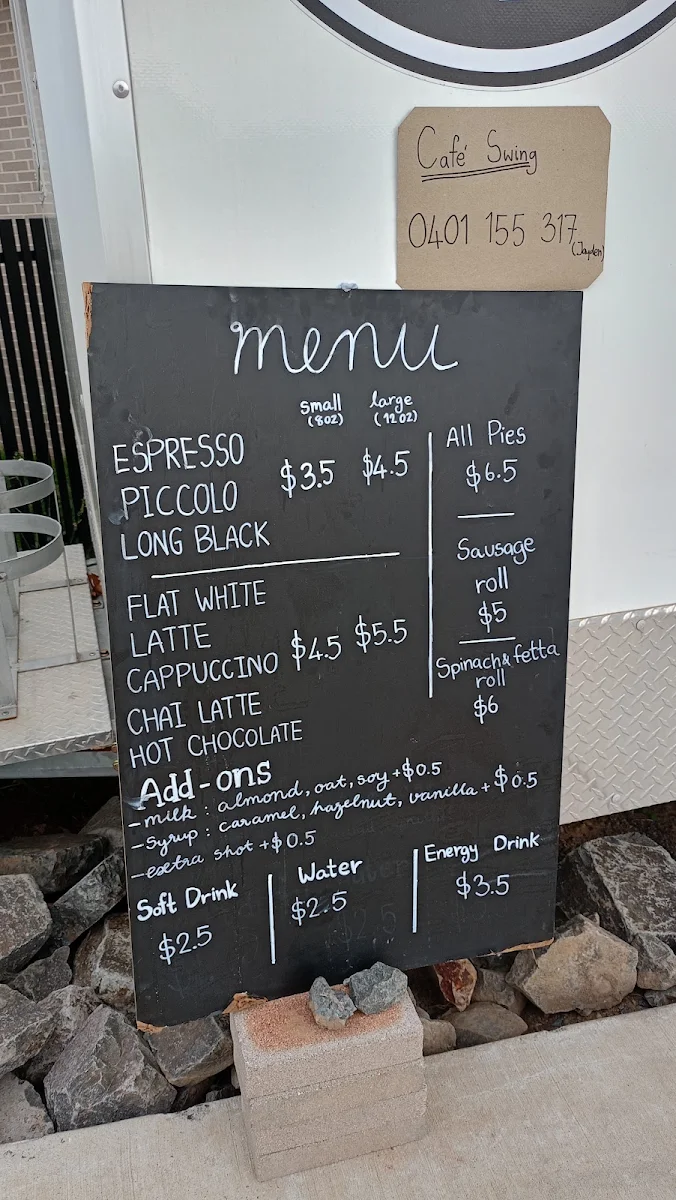 Café Swing
0401 155 317
(Jayden)
menu
small large
(8oz) (12oz)
ESPRESSO
PICCOLO
LONG BLACK
$3.5 $4.5
FLAT WHITE
LATTE
CAPPUCCINO
CHAI LATTE
HOT CHOCOLATE
$4.5 $5.5
All Pies
$6.5
Sausage
roll
$5
Spinach & fetta
roll
$6
Add-ons
- milk : almond, oat, soy +$0.5
- Syrup : caramel, hazelnut, vanilla + $0.5
- extra shot +$0.5
Soft Drink
$2.5
Water
$2.5
Energy Drink
$3.5